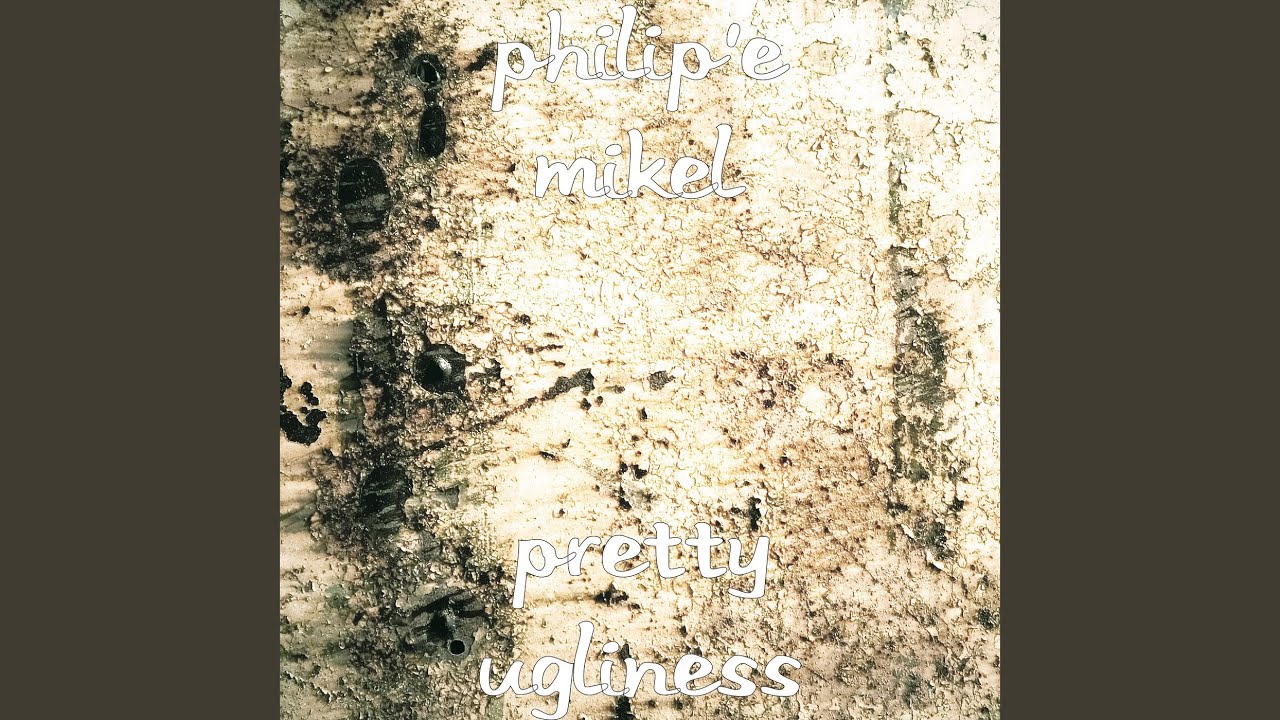 philip'e
mikel
pretty
ugliness